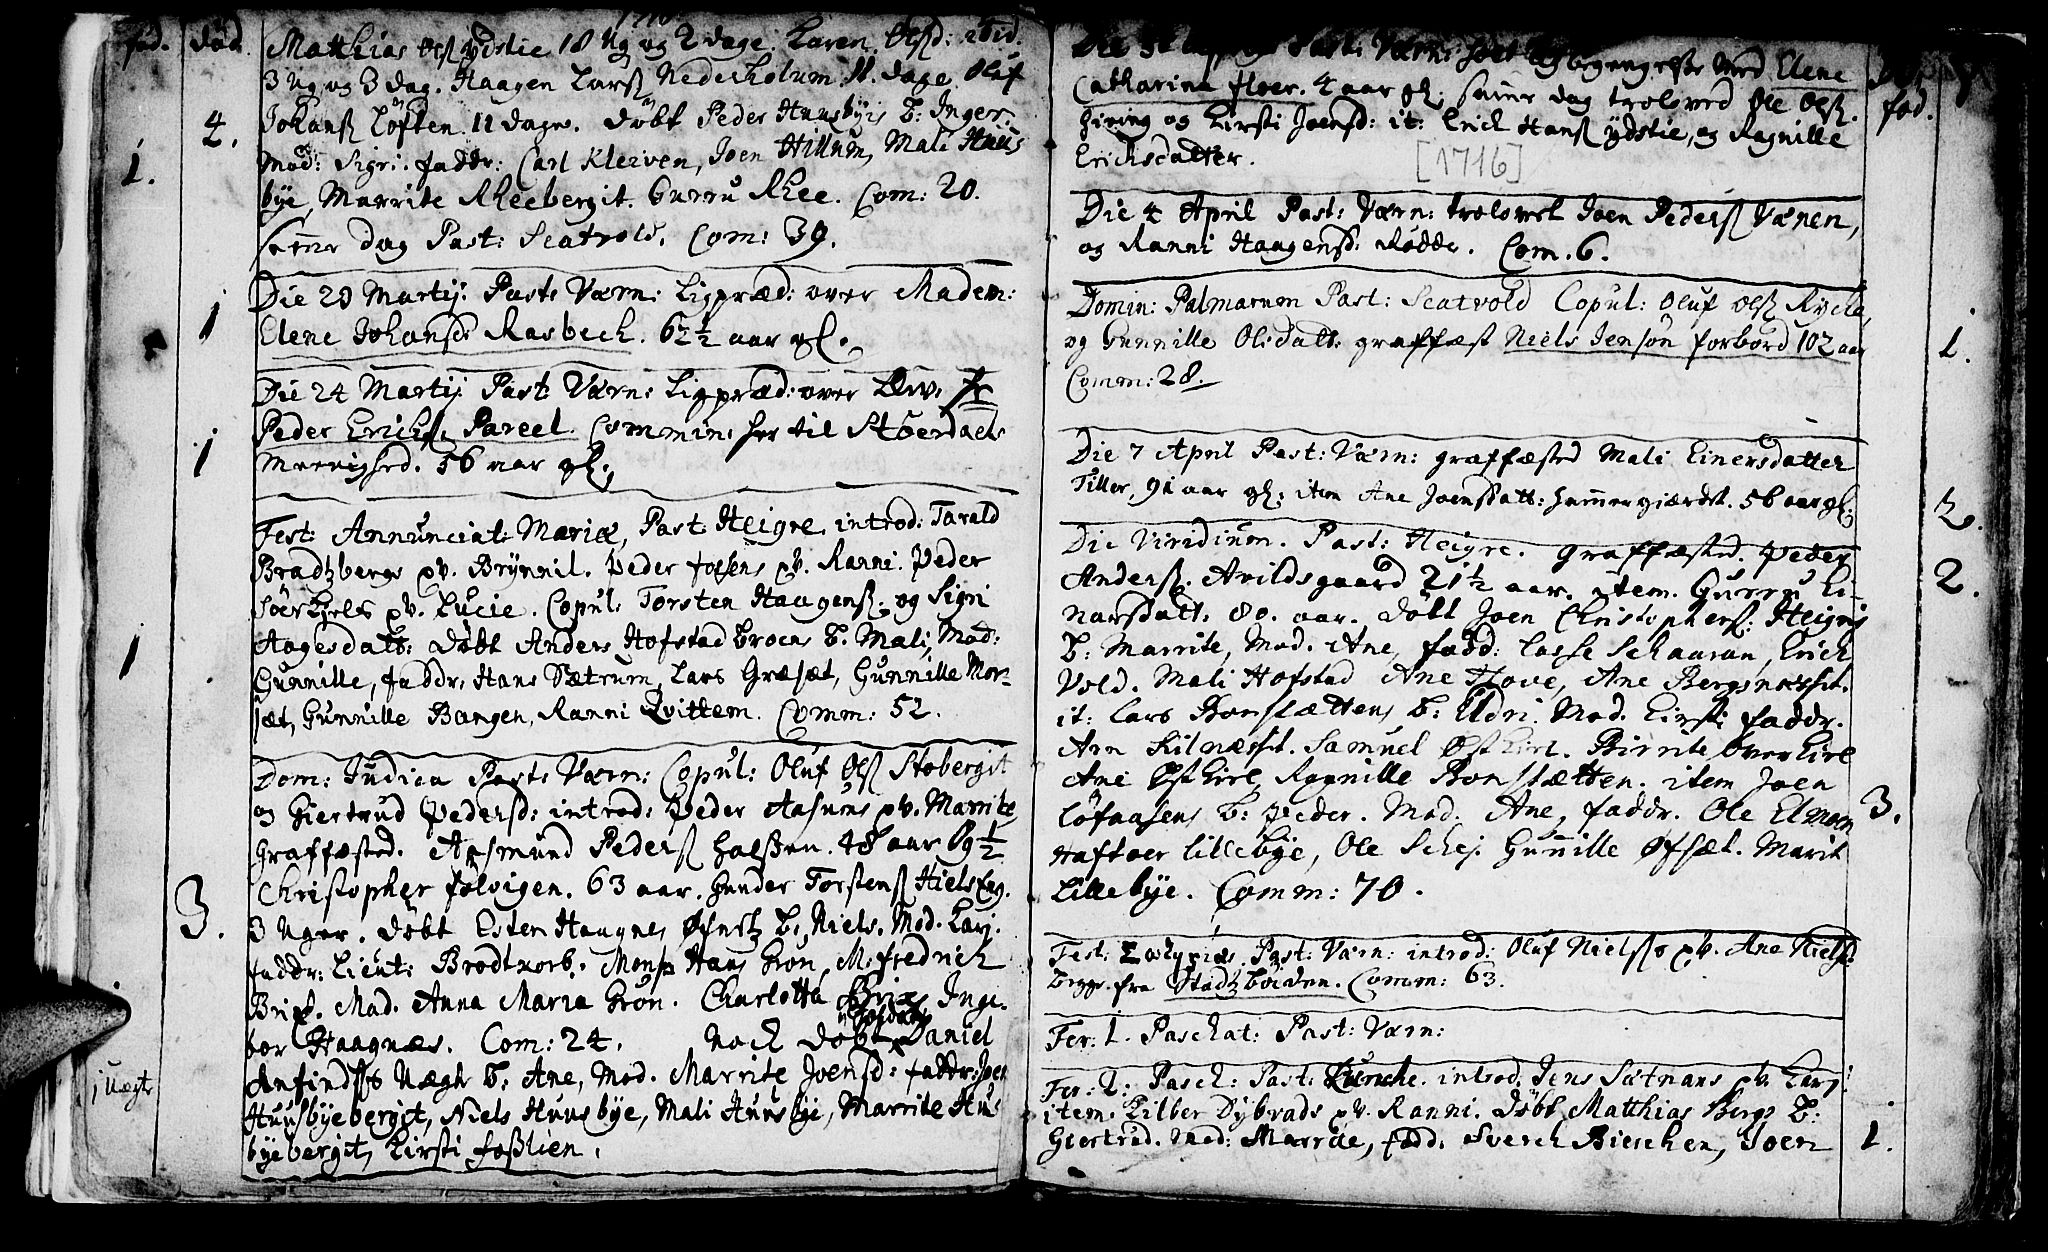 fød. død
Matthias Olß ydstie 18 Ug og 2 dage. Karen Olsd: ibid.
3 Ug og 3 dag. Haagen Larß Nederholum 11. dage Oluf
4 Johanß Löften. 11 dage. Døbt Peder Huusbyis B: Inger.
1. 2. Mod: Sigri. faddr: Carl Kleiven, Joen Hillum, Mali Huus
bye, Marrite Rheebergit. Gurru Rhee. Com: 20.
samme dag Past: Scatvold. Com: 39.
Die 20 Martij. Past: Værn: Ligpræd: over Madem:
1 Elene Johansd: Rasbech. 62½ aar gl.
Die 24 Martij Past: Værn: Ligpræd: over Hr
Peder Erichß. Pareel. Commin: her til Støerdaels
1 Menighed. 56 aar gl.
Fest: Annunciat: Mariæ, Past: Heigre, introd: Tarald
Bradtzbergs qv. Brynnil. Peder fossens qv. Ranni. Peder
qv. Lucie. Copul: Torsten Haagenß. og Sigri
1 Aagesdatt: Døbt Anders Hofstad broens B. Mali, Mod:
Gunnille, faddr: Hans Sætrum, Lars Græsæt, Gunnille Mor-
sæt, Gunnille Bangen, Ranni Qvittem. Comm: 52.
Dom: Judica Past: Værn: Copul: Oluf Olß Stobergit
og Giertrud Pedersd: introd: Peder Aasums qv. Marrite,
Graffæsted. Aasmund Pederß Halßen. 48 aar
Christopher folvigen. 63 aar. Gunder Torstenß Hielseng.
3. 3 Uger. Døbt Esten Haagnes B: Niels. Mod. Karj.
faddr: Lieut: Brodtkorb. Monsr Hans Grøn, M. fredrich
Brix. Mad. Anna Maria Grøn. Charlotta Brix, Inge-
bor Haagnæs. Com: 24. Noch døbt Daniel
1 Uægt Anfindß Uægte B: Ane, Mod. Marrite Joensd: faddr: Joen
Huusbyebergit, Niels Huusbye, Mali Huusbye, Marrite Hus
byebergit, Kirsti foßlien.
Past: Værn: med Elene
Catharina floer. 4 aar gl. samme dag troloved Ole Olß.
fød.
og Kirsti Joensd: it: Erich Hanß ydstie, og Ragnille
Erichsdatter.
[1716]
Die 4 April Past: Værn: trolovet Joen Pederß Værnen,
og Ranni Haagensd: Rødde. Com. 6.
Domin: Palmarum Past: Scatvold Copul: Oluf Olß Rycke,
og Gunnille Olsdatt: graffæst Niels Jensøn forbord 102 aar 1.
Comm: 28.
Die 7 April Past: Værn: graffæsted Mali Einersdatter
Tiller, 91 aar gl: item Ane Joensdatt: Hammergiærdet. 56 aar gl. 2.
Die Viridium. Past: Heigre. Graffæsted. Peder
Anderß. Arildsgaard 21½ aar. item. Gurru Ei- 2.
narsdatt: 80. aar. Døbt Joen Christopherß: Heigris
B: Marrite, Mod. Ane, fadd: Lasse Schaaran, Erich
Vold. Mali Hofstad Ane Hove, Ane Bergsnæsset.
it: Lars Bonsættens B: Eldri. Mod. Kirsti faddr.
Arn Kilnæsset. Samuel Østkirl. Birrite Overkirl
Ane Østkirl, Ragnille Bonsætten. item Joen
Løfaasens B: Peder. Mod. Ane, faddr. Ole Elmoen 3.
Haftoer Lillebye, Ole Schej. Gunnille Øfsæt. Marit
Lillebye. Comm: 70.
Fest: Past: Værn: introd: Oluf Nielssø qv. Ane Nielsd:
begge fra Stadtzboiden. Comm: 63.
Fer. 1. Paschat: Past: Værn:
Fer: 2: Pasch: Past: introd: Jens Sætnans qv. Karj:
item. Eilber Dybvads qv. Ranni. Døbt Matthias Bergs B:
Giertrud. Mod: Marrite, fadd. Sverch Bierchen, Joen 1.